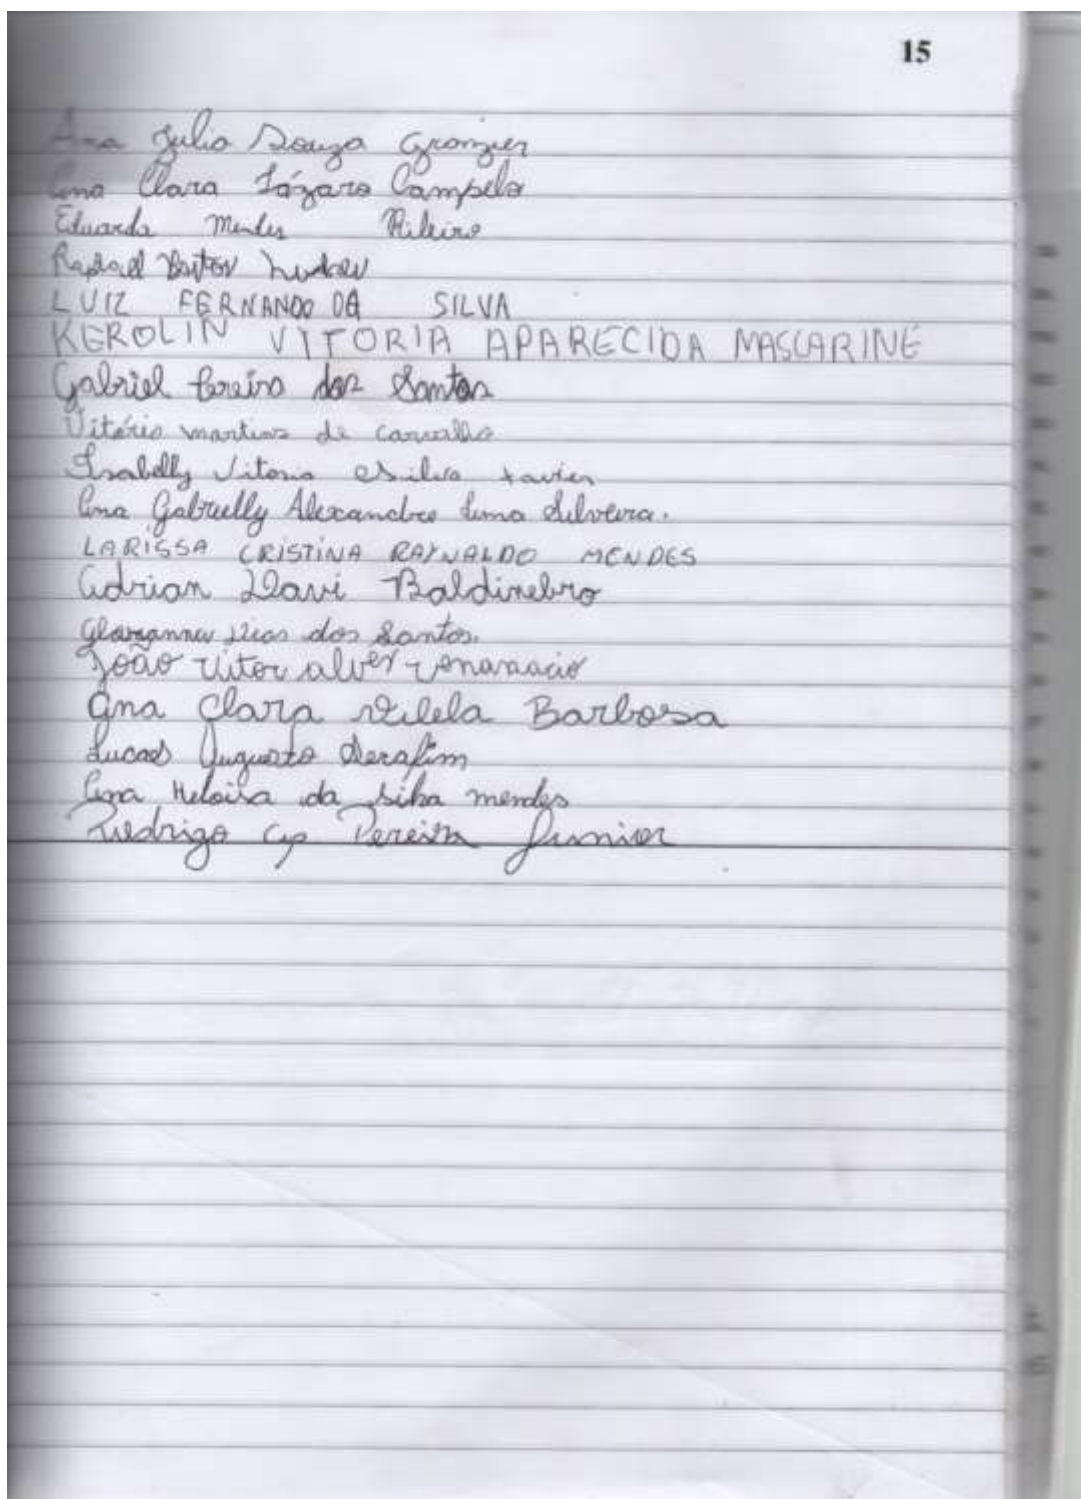 15
Ana Julia Souza Granzier
Ana Clara Lázaro Campelo
Eduarda Mendes Ribeiro
Rafael
LUIZ FERNANDO DA SILVA
KEROLIN VITORIA APARECIDA MASCARINE
Gabriel Pereira dos Santos
Vitória martins de carvalho
Isabelly Vitoria Silva xavier
Ana Gabrielly Alexandre Lima Silveira.
LARISSA CRISTINA RAYNALDO MENDES
Adrian Davi Baldinebro
dos Santos.
João Vitor alves venanacio
Ana Clara Vilela Barbosa
Lucas Augusto Serafim
Ana Heloisa da silva mendes
Rodrigo Pereira Junior